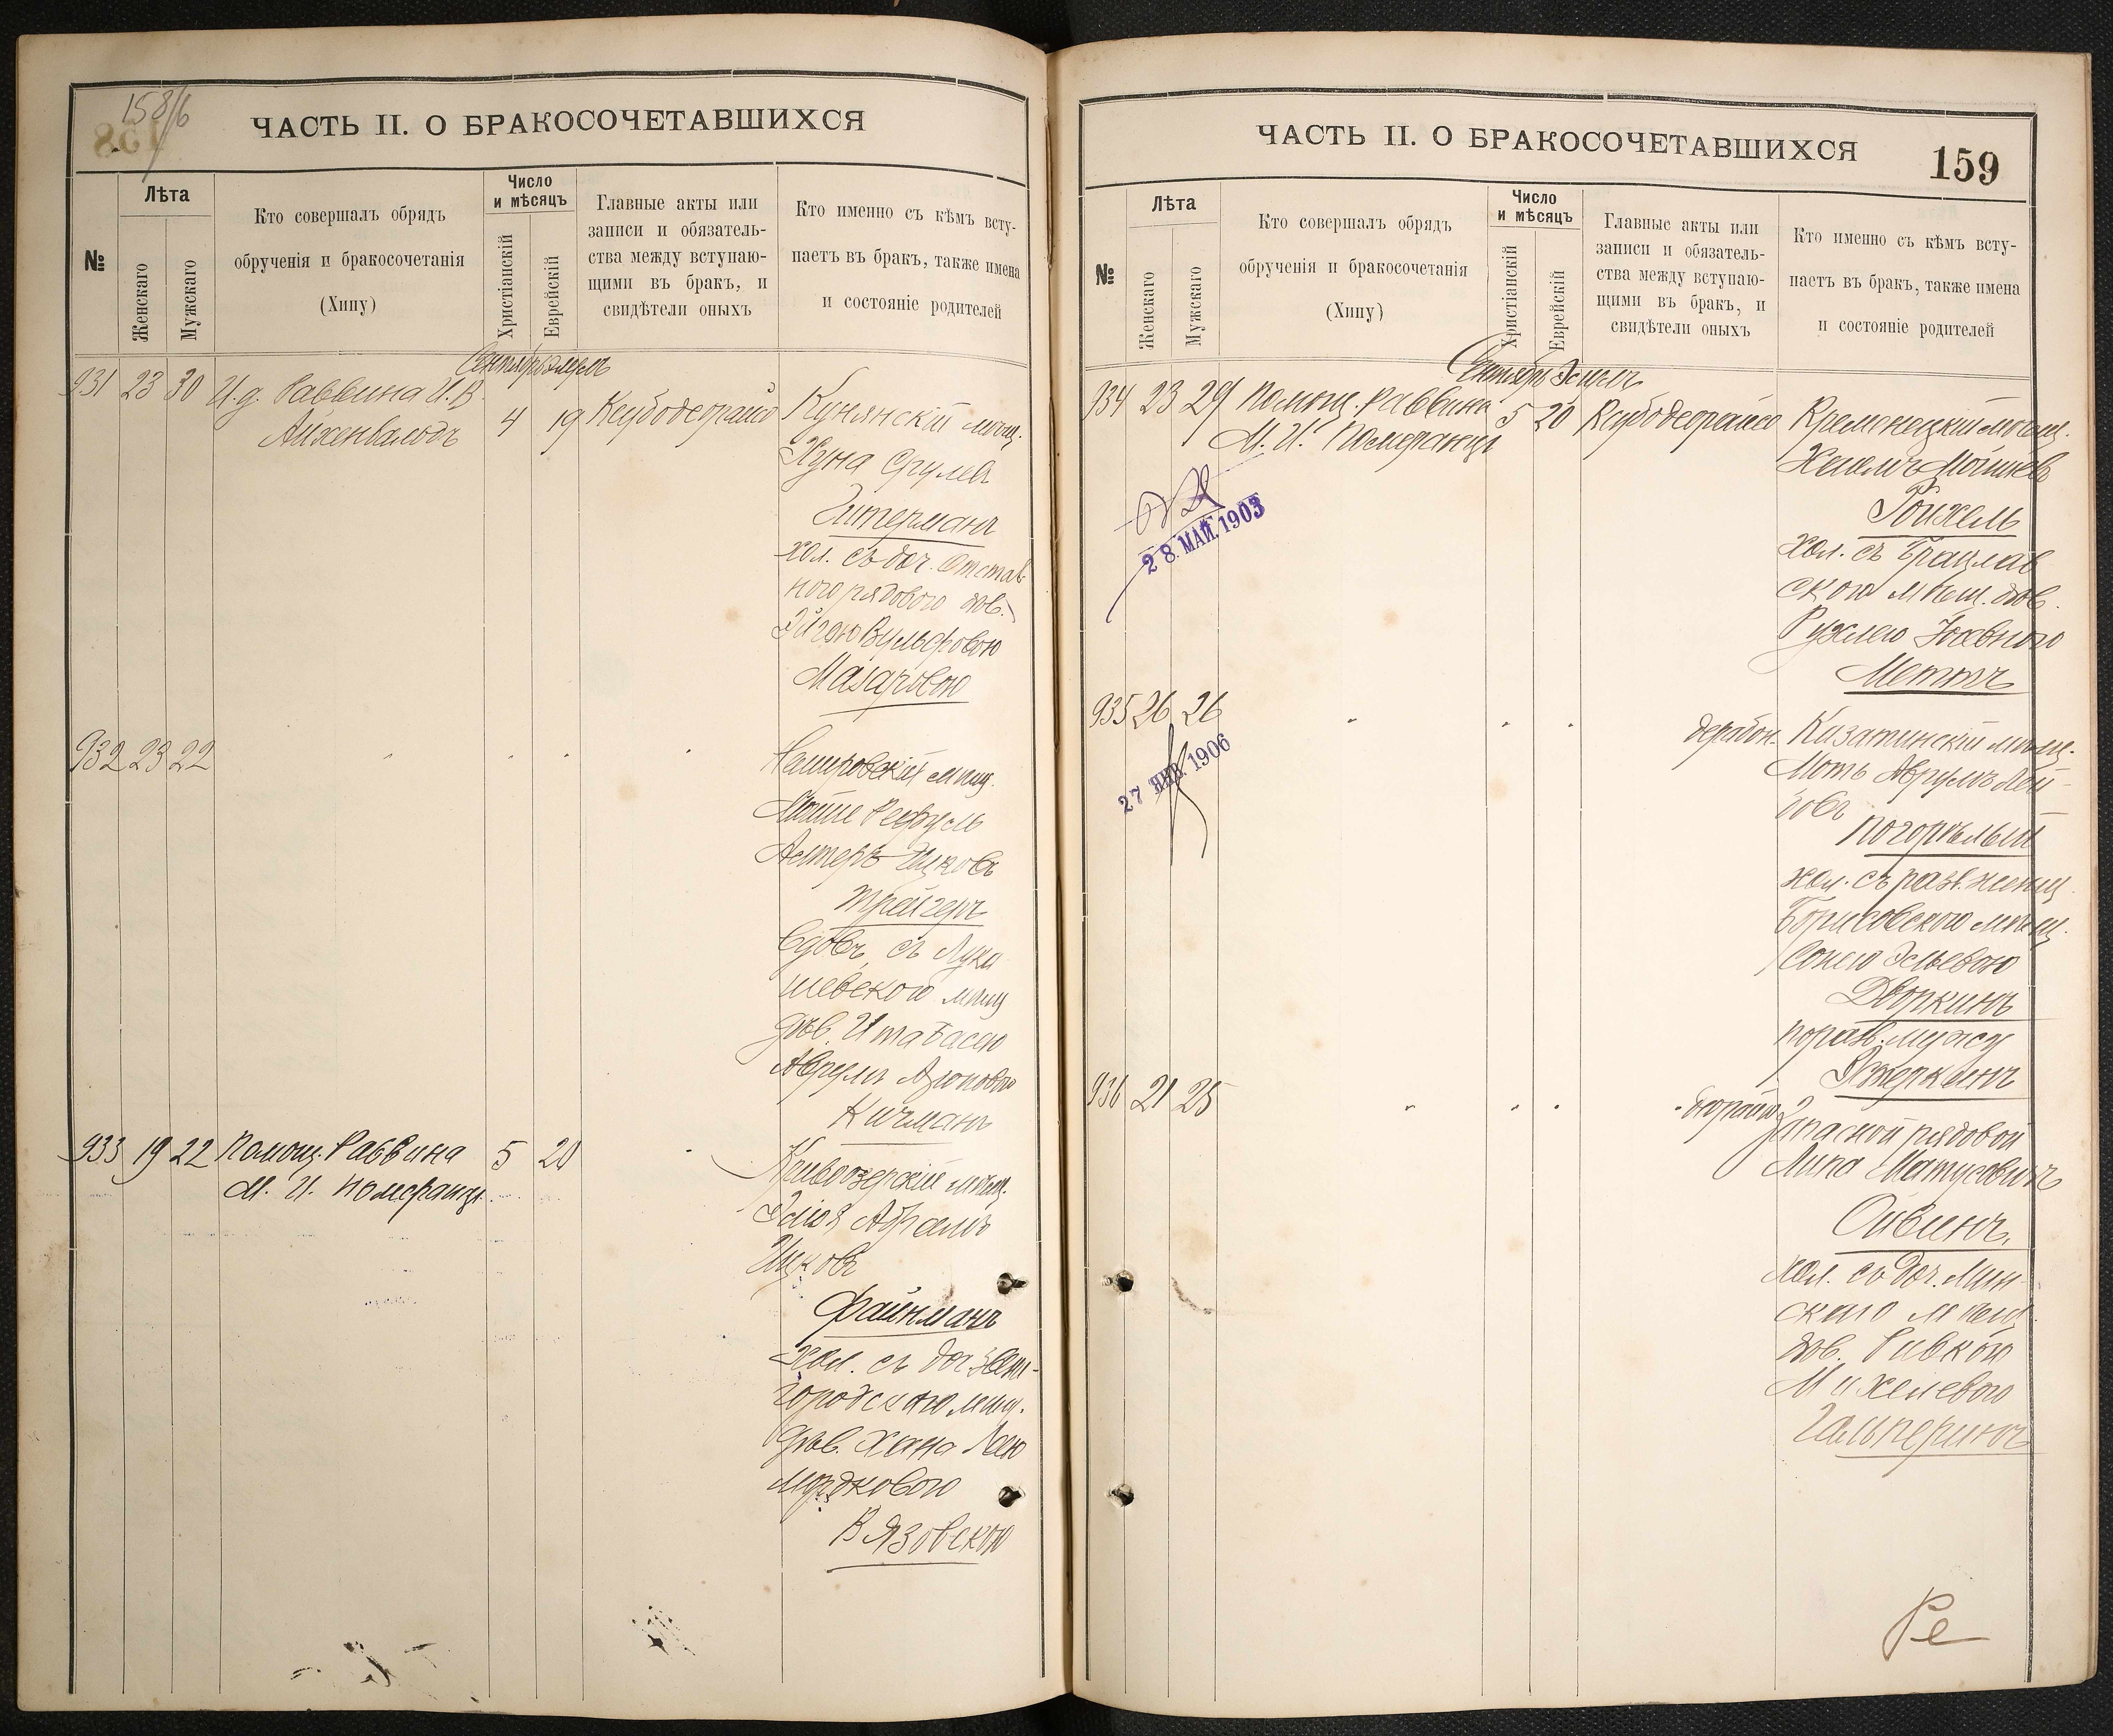 158/б
ЧАСТЬ II. О БРАКОСОЧЕТАВШИХСЯ
№
Лѣта
Женскаго
Мужскаго
Кто совершалъ обрядъ
обрученія и бракосочетанія
(Хипу)
Число
и мѣсяцъ
Христіанскій
Еврейскій
Главные акты или
записи и обязатель-
ства между вступаю-
щими въ бракъ, и
свидѣтели оныхъ
Кто именно съ кѣмъ всту-
паетъ въ бракъ, также имена
и состояніе родителей
931 23 30 И.д. Раввина И.В.
Айхенвальдъ
Сентябрь
4 19
Кунянскій мѣщ.
Срулевъ
Гитерманъ
хол. съ доч. Отстав
ного рядового дѣв.
Вульфовою
Мазаровою
932 23 22
мѣщ.
Мойше Рефуль
Ицковъ
Трейгеръ
вдовъ, съ Лука
шевскою мѣщ
дѣв. Ита Басею
Аврумъ
Кичманъ
933 19 22 Помощ. Раввина
М. И. Померанцъ
5 20
Кривоозерскій мѣщ.
Абрамъ
Ицковъ
Файнманъ
хол. съ доч. Звени-
городскаго мѣщ.
дѣв. Хана Лею
Мордковою
Вязовскою
ЧАСТЬ II. О БРАКОСОЧЕТАВШИХСЯ
159
№
Лѣта
Женскаго
Мужскаго
Кто совершалъ обрядъ
обрученія и бракосочетанія
(Хипу)
Число
и мѣсяцъ
Христіанскій
Еврейскій
Главные акты или
записи и обязатель-
ства между вступаю-
щими въ бракъ, и
свидѣтели оныхъ
Кто именно съ кѣмъ всту-
паетъ въ бракъ, также имена
и состояніе родителей
934 23 29 Помощ. Раввина
М. И. Померанцъ
Сентябрь
5 20
Кременецкій мѣщ.
Мошковъ
Ройхель
хол. съ Брацлав
скою мѣщ. дѣв.
Рухлею
28 МАЙ. 1903
935 26 26
27 ЯНВ. 1906
Казатинскій мѣщ.
Моть Аврумъ Лей-
Погорѣлый
хол. съ разв. женщ.
Борисовскою мѣщ.
Сонею Эльевою
Дворкинъ
по разв. мужу
936 21 25
Запасной рядовой
Липа Матусовичъ
Ойвинъ,
хол. съ доч. Мин-
скаго мѣщ.
дѣв. Ривкою
Михелевою
Гальперинъ
Ре